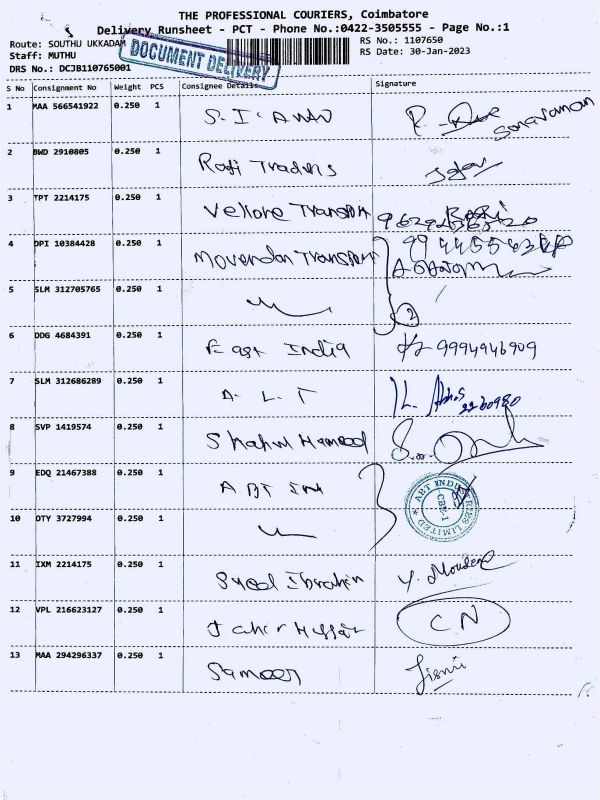 THE PROFESSIONAL COURIERS, Coimbatore
Delivery Runsheet - PCT - Phone No.:0422-3505555 - Page No.:1
Route: SOUTHU UKKADAM
RS No.: 1107650
Staff: MUTHU
RS Date: 30-Jan-2023
DRS No.: DCJB110765001
DOCUMENT DELIVERY
S No Consignment No Weight PCS Consignee Details Signature
1 MAA 566541922 0.250 1
2 BWD 2910805 0.250 1 Rafi Traders
3 TPT 2214175 0.250 1 Vellore Transport
4 DPI 10384428 0.250 1 Movendan Transport
5 SLM 312705765 0.250 1
6 DDG 4684391 0.250 1 East India 9994946909
7 SLM 312686289 0.250 1 A. L. T
8 SVP 1419574 0.250 1 Shahul Hameed
9 EDQ 21467388 0.250 1 ABT Ind
ABT INDUSTRIES LIMITED
CBE-1
10 OTY 3727994 0.250 1
11 IXM 2214175 0.250 1 Syed Ibrahim
12 VPL 216623127 0.250 1 CN
13 MAA 294296337 0.250 1 Sameer